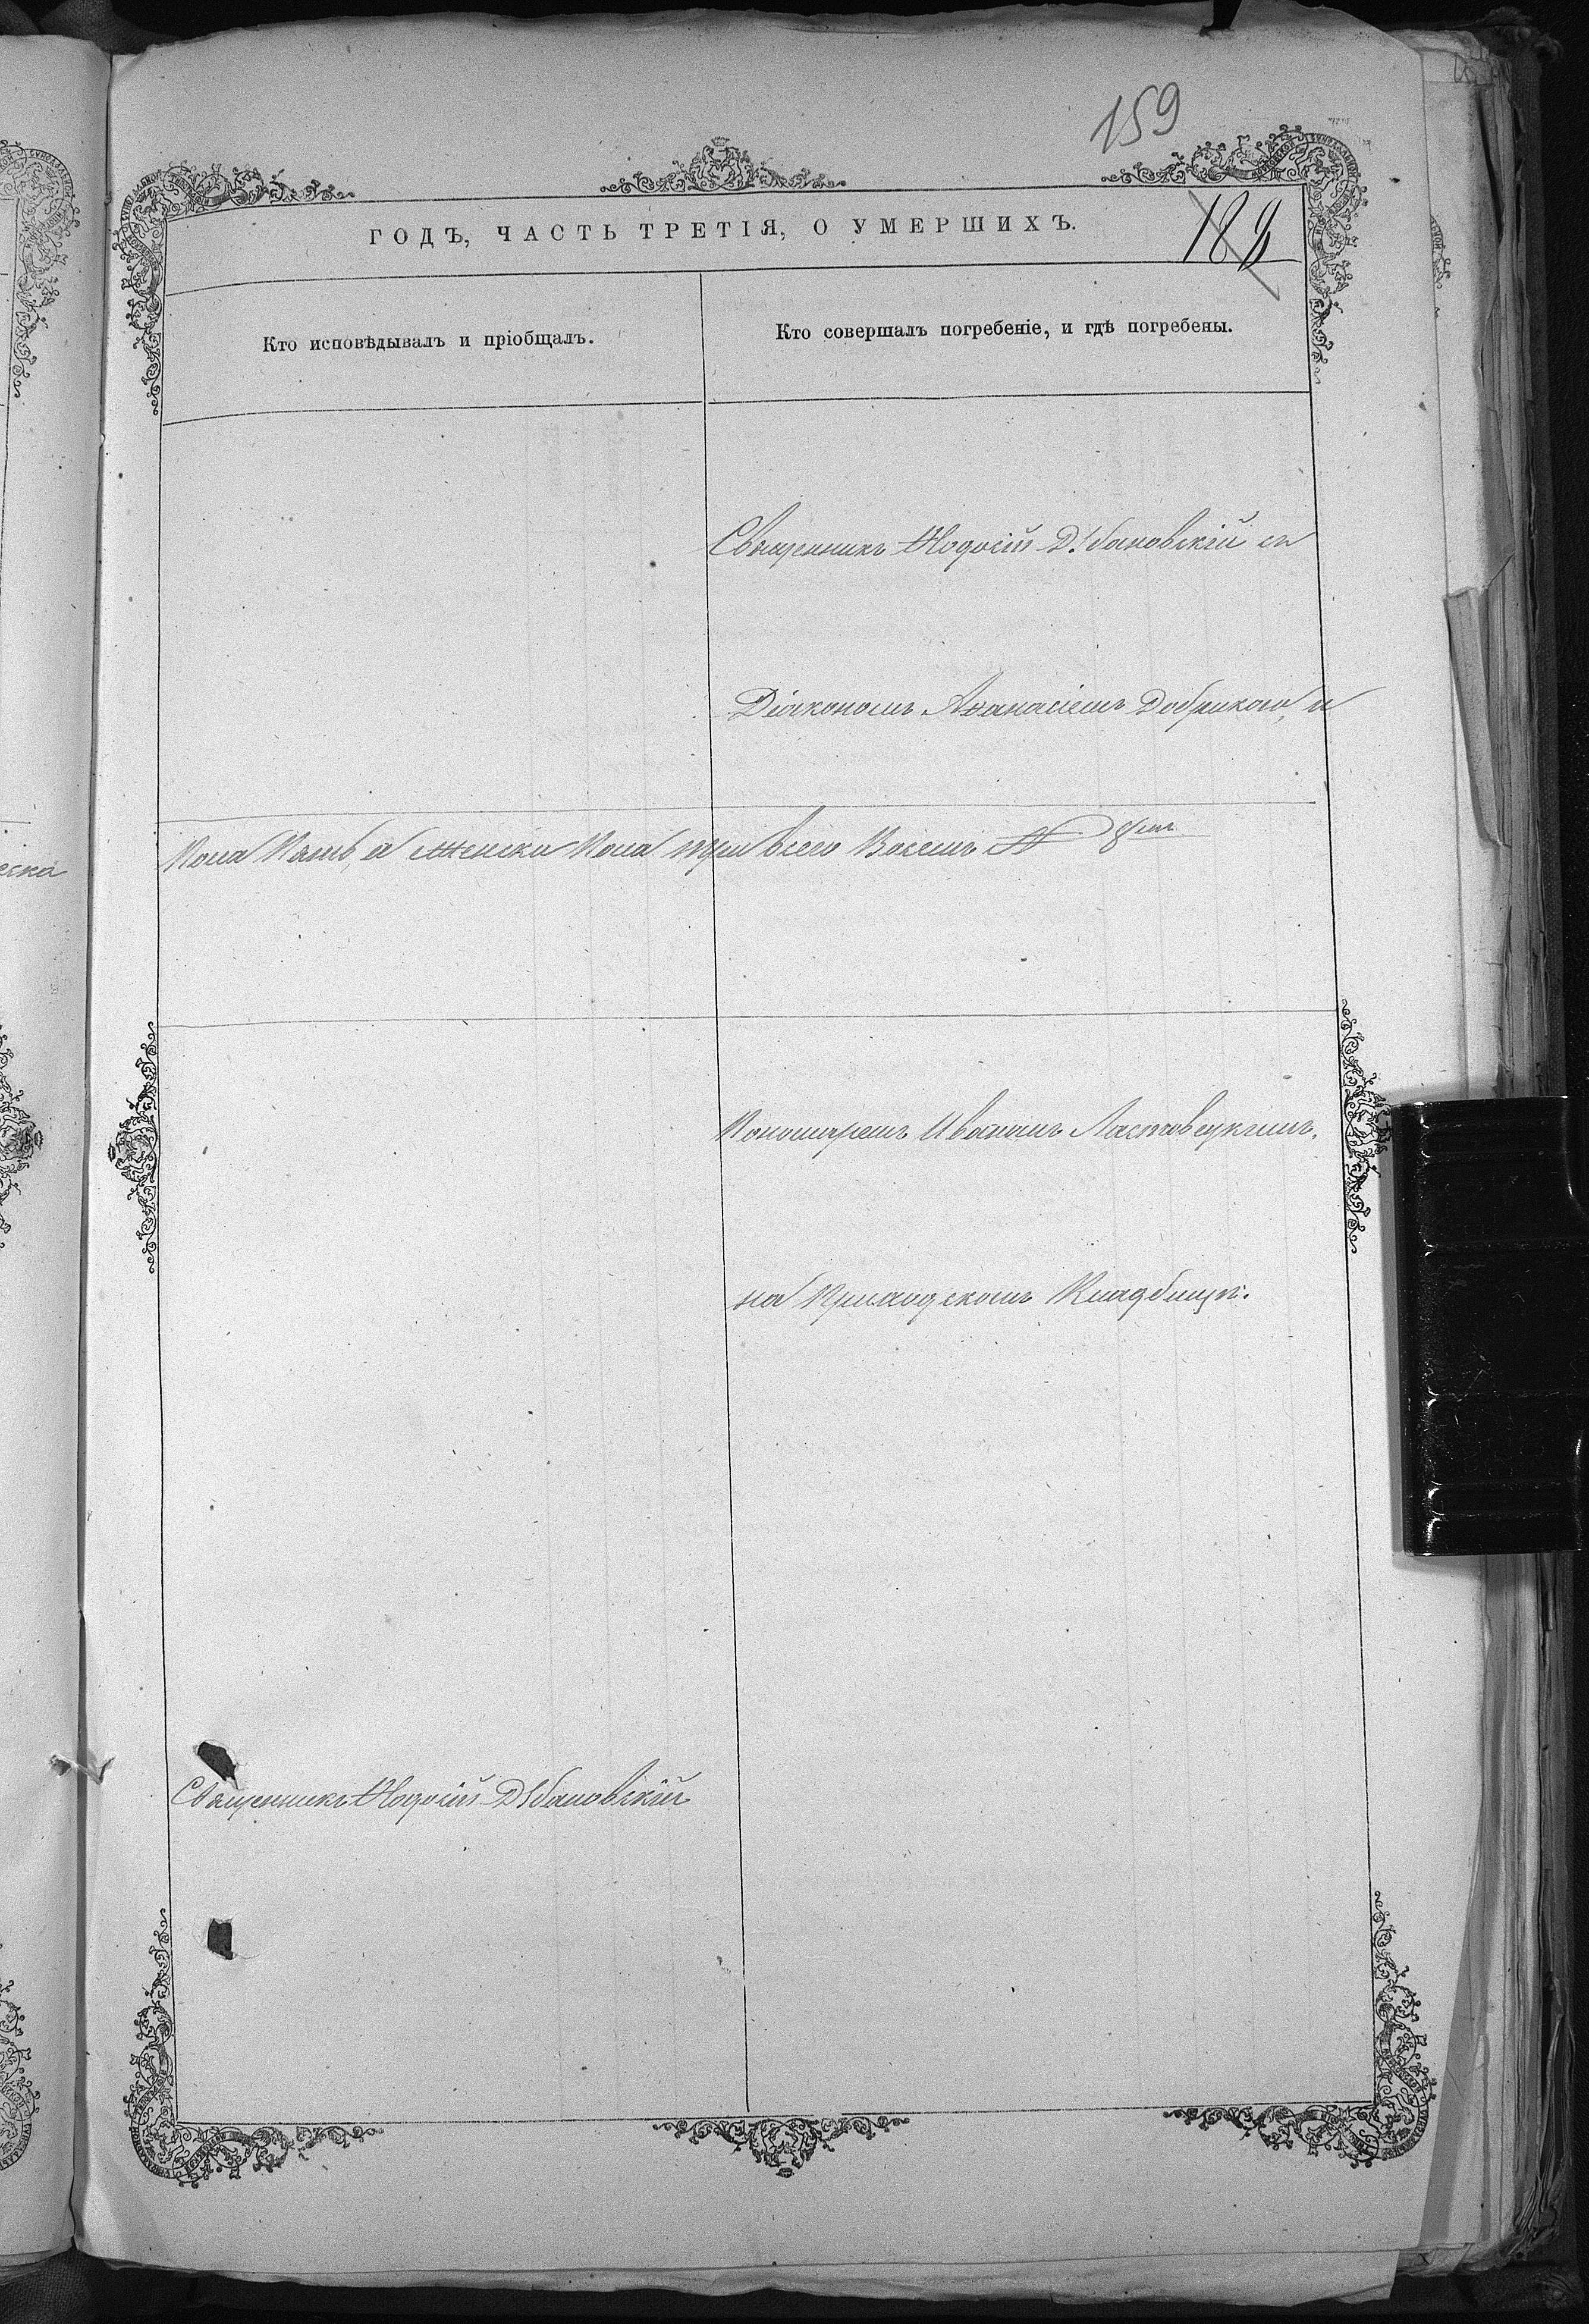 159
ГОДЪ, ЧАСТЬ ТРЕТІЯ, О УМЕРШИХЪ.
Кто исповѣдывалъ и пріобщалъ.
Кто совершалъ погребеніе, и гдѣ погребены.
Священникъ Ѳеодосій Дубановскій съ
Діакономъ Аѳанасіемъ Добрикою, и
Пола Пять, а Женска Пола три всего Восемь
Пономаремъ Иваномъ Ластовецкимъ.
на Приходскомъ Кладбищѣ.
Священникъ Ѳеодосій Дубановскій